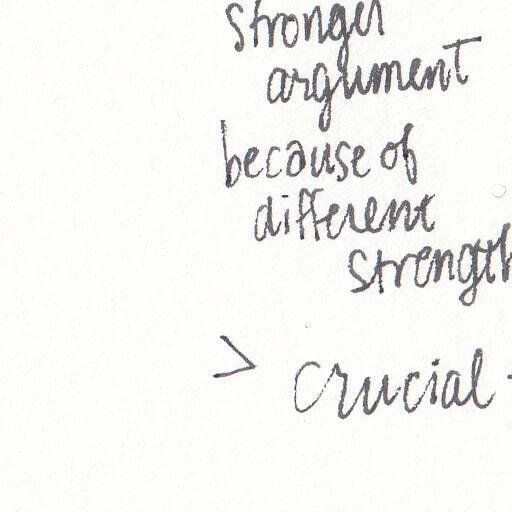 stronger
argument
because of
different
strength
> crucial -